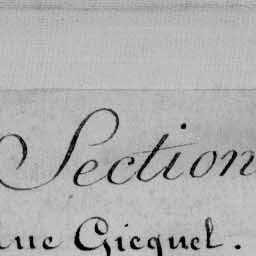 Section
rue Gicquel.